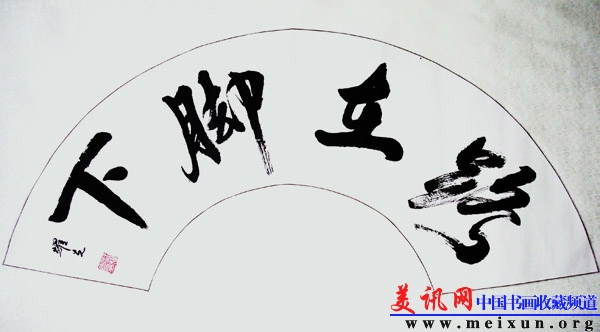 路在脚下
美讯网 中国书画收藏频道
www.meixun.org